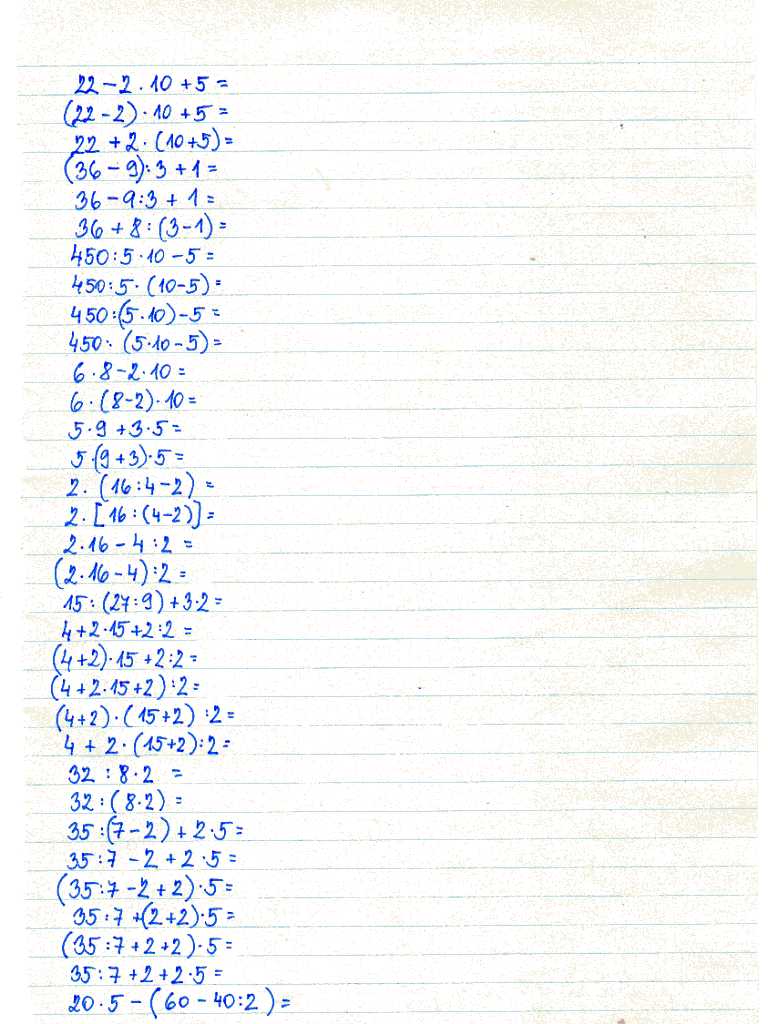 22 - 2 · 10 + 5 =
(22 - 2) · 10 + 5 =
22 + 2 · (10 + 5) =
(36 - 9) : 3 + 1 =
36 - 9 : 3 + 1 =
36 + 8 : (3 - 1) =
450 : 5 · 10 - 5 =
450 : 5 · (10 - 5) =
450 : (5 · 10) - 5 =
450 : (5 · 10 - 5) =
6 · 8 - 2 · 10 =
6 · (8 - 2) · 10 =
5 · 9 + 3 · 5 =
5 · (9 + 3) · 5 =
2 · (16 : 4 - 2) =
2 · [16 : (4 - 2)] =
2 · 16 - 4 : 2 =
(2 · 16 - 4) : 2 =
15 : (27 : 9) + 3 · 2 =
4 + 2 · 15 + 2 : 2 =
(4 + 2) · 15 + 2 : 2 =
(4 + 2 · 15 + 2) : 2 =
(4 + 2) · (15 + 2) : 2 =
4 + 2 · (15 + 2) : 2 =
32 : 8 · 2 =
32 : (8 · 2) =
35 : (7 - 2) + 2 · 5 =
35 : 7 - 2 + 2 · 5 =
(35 : 7 - 2 + 2) · 5 =
35 : 7 + (2 + 2) · 5 =
(35 : 7 + 2 + 2) · 5 =
35 : 7 + 2 + 2 · 5 =
20 · 5 - (60 - 40 : 2) =